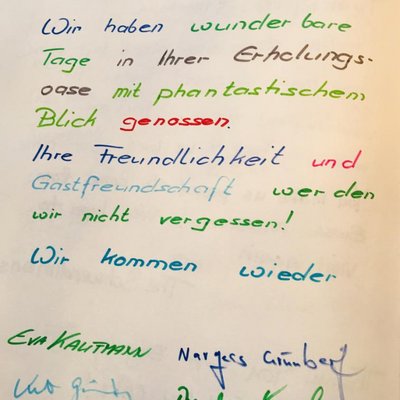 Wir haben wunderbare
Tage in Ihrer Erholungs-
oase mit phantastischem
Blick genossen.
Ihre Freundlichkeit und
Gastfreundschaft werden
wir nicht vergessen!
Wir kommen wieder
EVA KAUTMANN Nargess